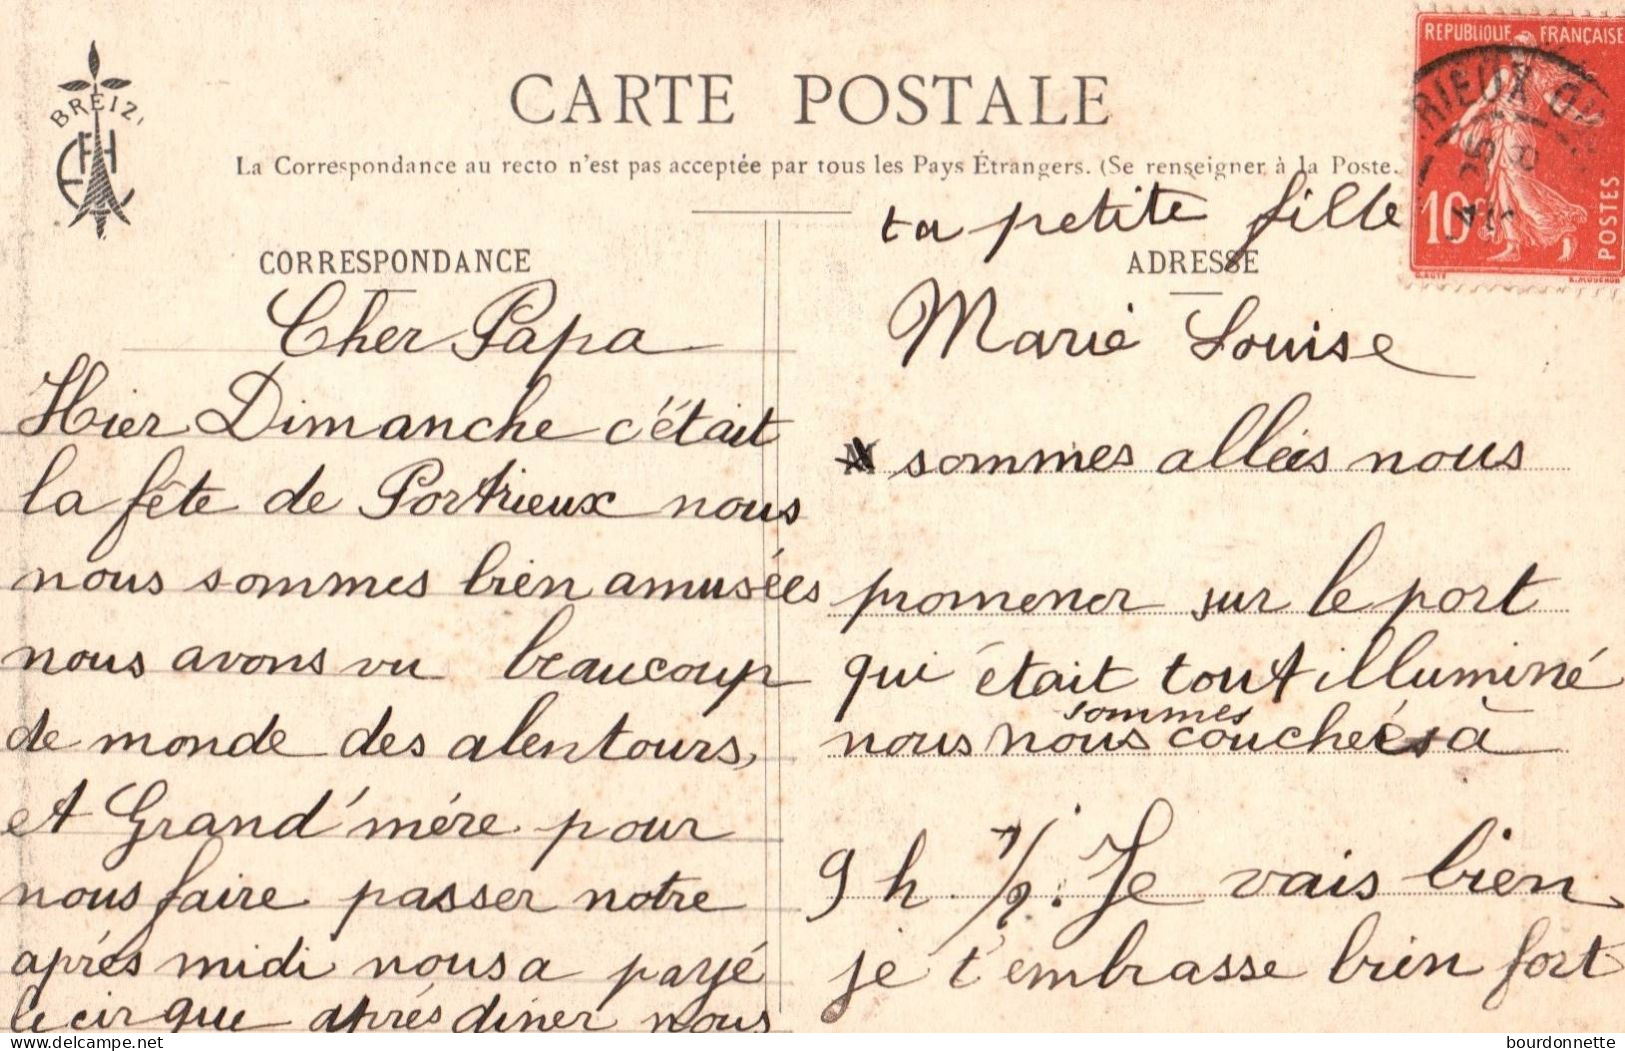 BREIZ
CARTE POSTALE
La Correspondance au recto n'est pas acceptée par tous les Pays Étrangers. (Se renseigner à la Poste.
CORRESPONDANCE
Cher Papa
Hier Dimanche c'était
la fête de Portrieux nous
nous sommes bien amusées
nous avons vu beaucoup
de monde des alentours,
et Grand'mère pour
nous faire passer notre
après midi nous a payé
le cirque après diner nous
ta petite fille
ADRESSE
Marie Louise
sommes allées nous
promener sur le port
qui était tout illuminé
sommes
nous nous couchées à
9 h. 1/2. Je vais bien
je t'embrasse bien fort
REPUBLIQUE FRANÇAISE
RIEUX
10c
POSTES
delcampe.net
bourdonnette